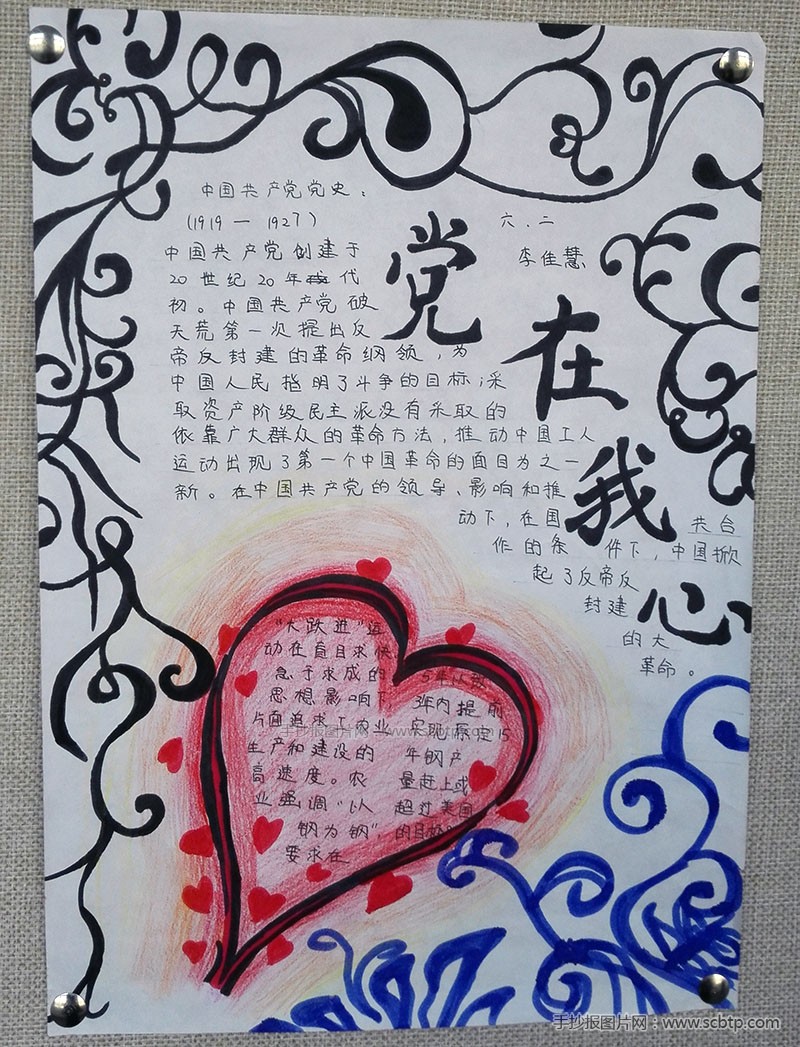 中国共产党党史：
(1919 — 1927)
六.二
李佳慧
党
在
我
心
中国共产党创建于
20世纪20年代
初。中国共产党破
天荒第一次提出反
帝反封建的革命纲领，为
中国人民指明了斗争的目标；采
取资产阶级民主派没有采取的
依靠广大群众的革命方法，推动中国工人
运动出现了第一个中国革命的面目为之一
新。在中国共产党的领导、影响和推
动下，在国 共合
作的条 件下，中国掀
起了反帝反
封建
的大
革命。
"大跃进"运
动在盲目求快
急于求成的
思想影响下
片面追求工农业
生产和建设的
高速度。农
业强调"以
钢为钢"，
要求在
5年
3年内提前
实现原定15
年钢产
量赶上或
超过美国
的目标。
手抄报图片网：www.scbtp.com
手抄报图片网：www.scbtp.com